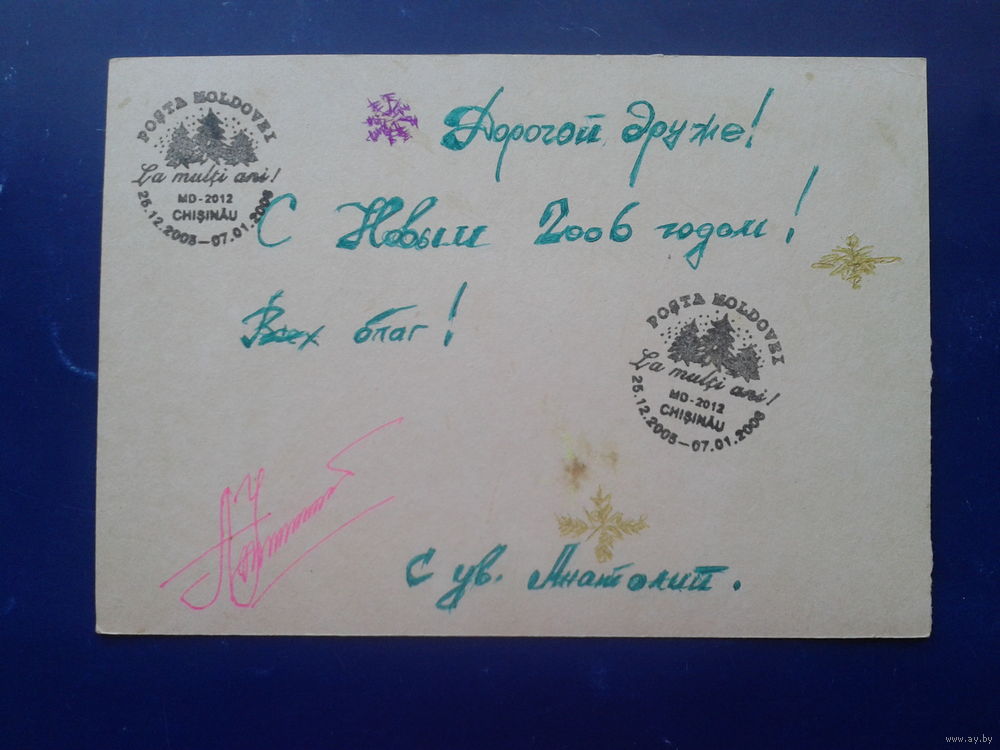 POȘTA MOLDOVEI
La mulți ani!
MD-2012
CHIȘINĂU
25.12.2005-07.01.2006
Дорогой друже!
С Новым 2006 годом!
Всех благ!
POȘTA MOLDOVEI
La mulți ani!
MD-2012
CHIȘINĂU
25.12.2005-07.01.2006
С ув. Анатолий.
www.ay.by